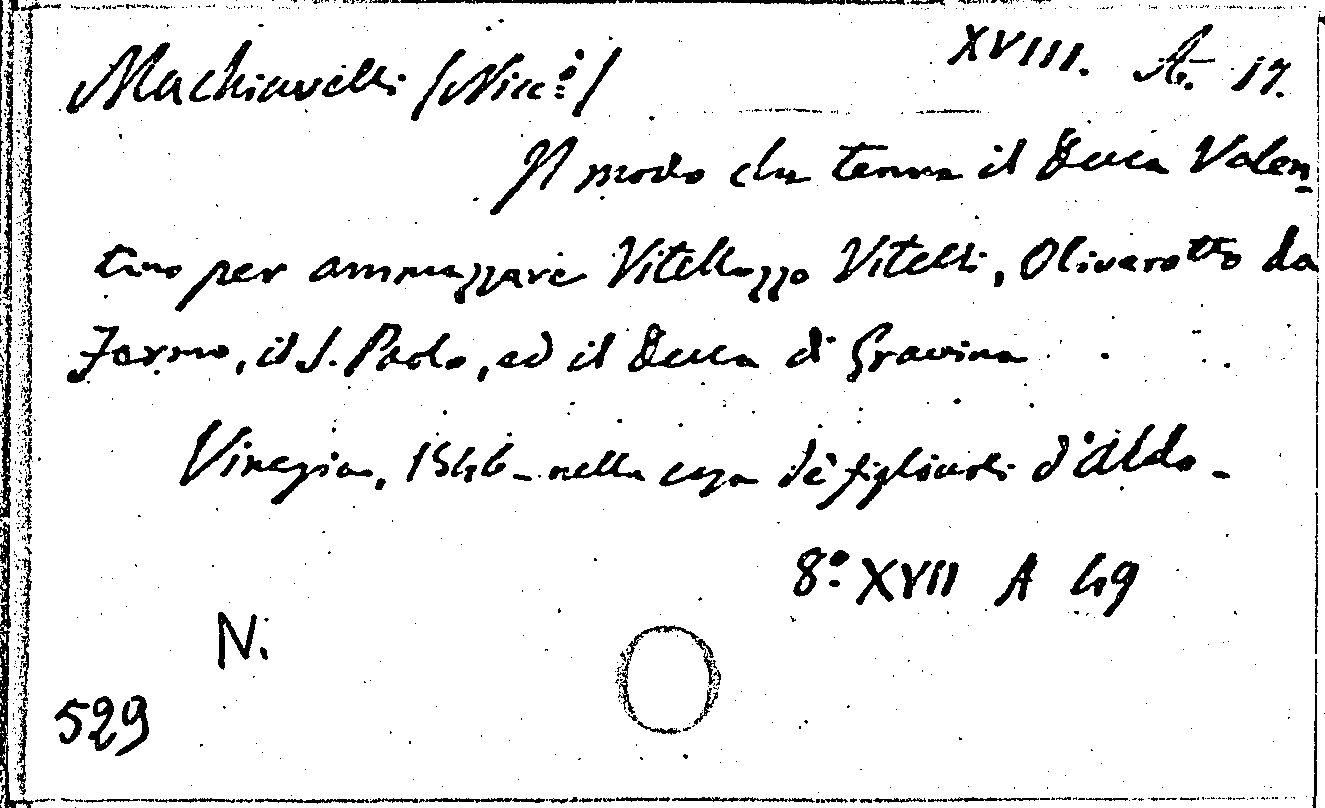 Machiavelli (Nicc:º) XVIII. A. 17.
Il modo che tenne il Duca Valen-
tino per ammazzare Vitellozzo Vitelli, Oliverotto da
Fermo, il S. Paolo, ed il Duca di Gravina
Vinegia, 1546 - nella casa de' figliuoli d'Aldo -
8º XVII A 49
N.
529